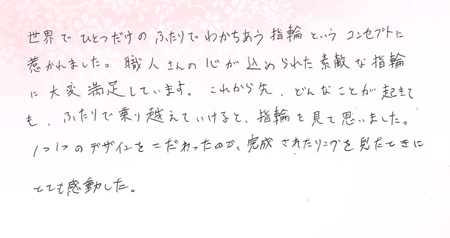 世界でひとつだけのふたりでわかちあう指輪というコンセプトに
惹かれました。職人さんの心が込められた素敵な指輪
に大変満足しています。これから先、どんなことが起きて
も、ふたりで乗り越えていけると、指輪を見て思いました。
1つ1つのデザインをこだわったので、完成されたリングを見たときに
とても感動した。